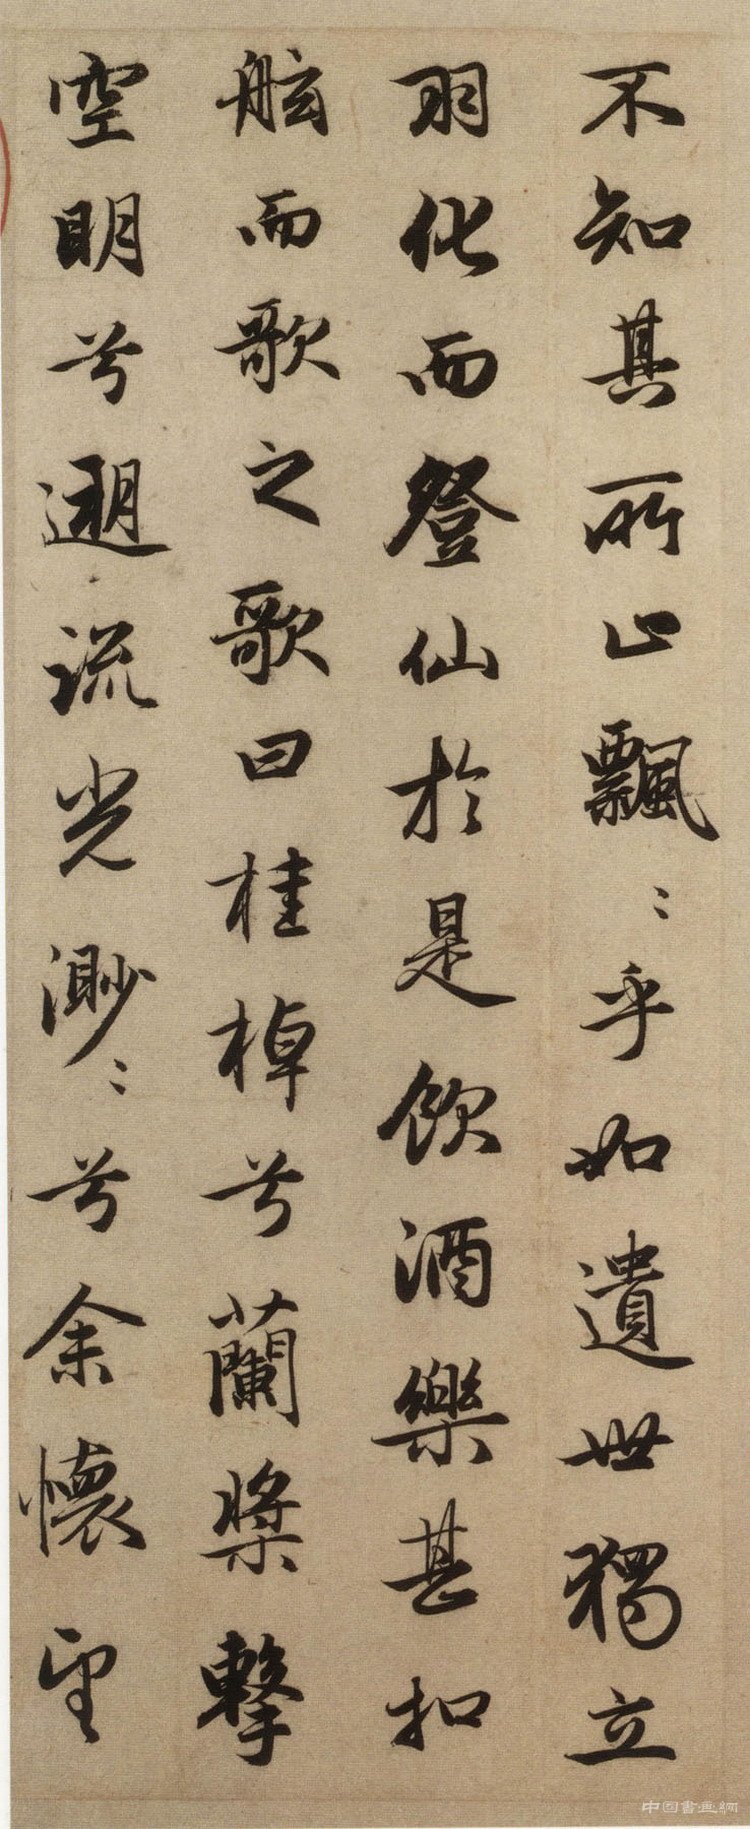 不知其所止飄〻乎如遺世獨立
羽化而登仙於是飲酒樂甚扣
舷而歌之歌曰桂棹兮蘭槳擊
空明兮遡流光渺〻兮余懷望
中国書画網